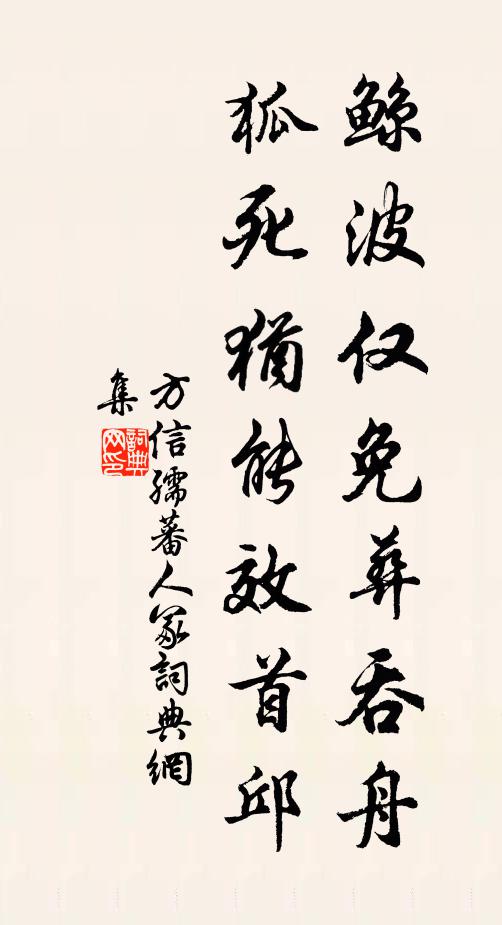 鲸波仅免葬吞舟
狐死犹能效首邱
方信孺蕃人冢詞典網
集
詞典
网印